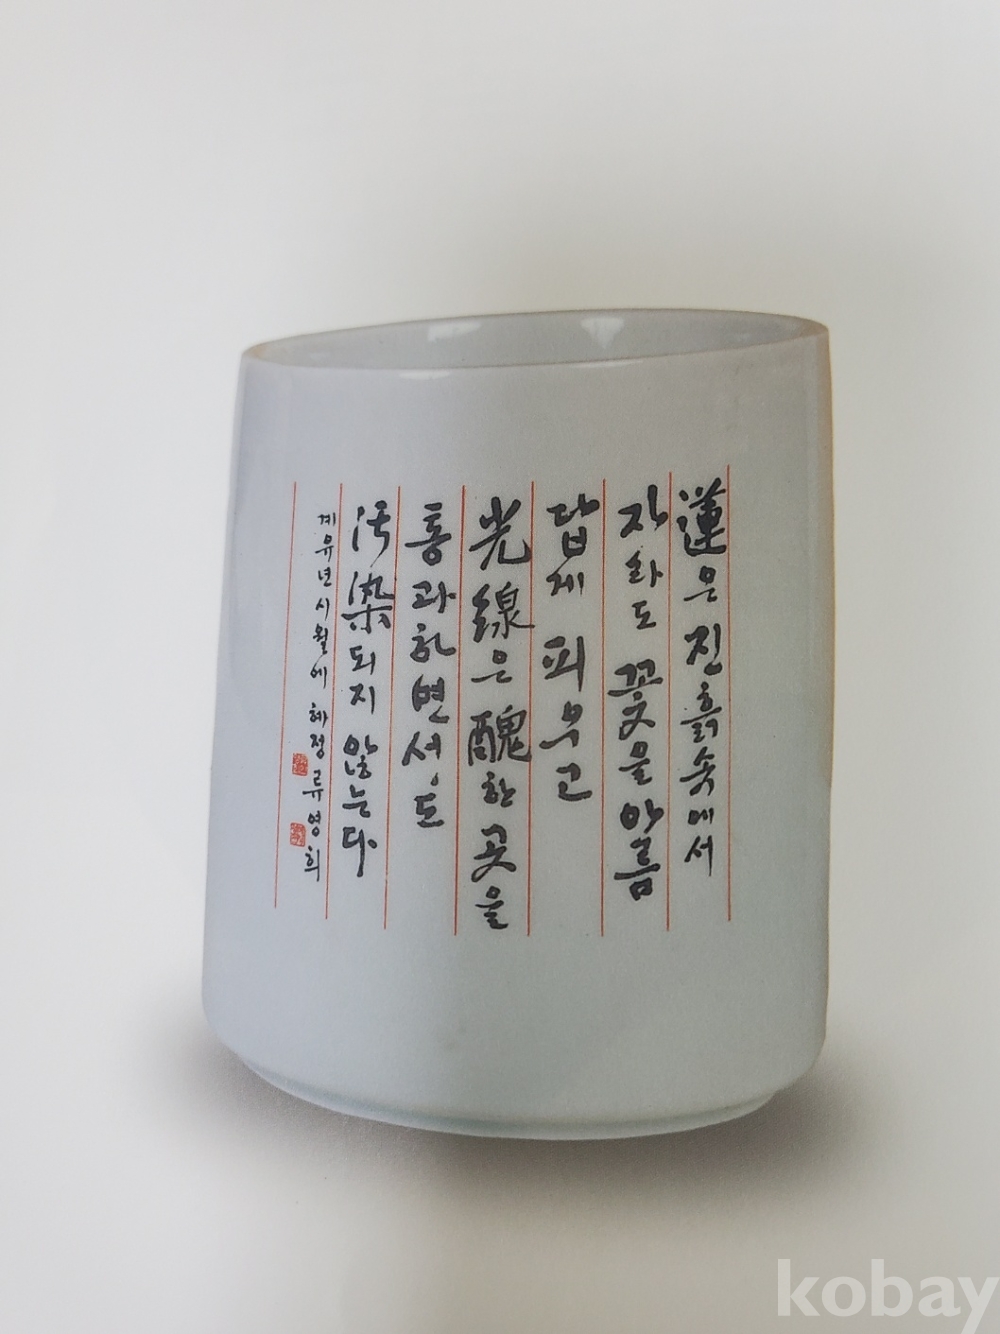 蓮은 진흙속에서
자라도 꽃을 아름
답게 피우고
光線은 醜한 곳을
통과하면서도
汚染되지 않는다
계유년 시월에 혜정 류영희
kobay